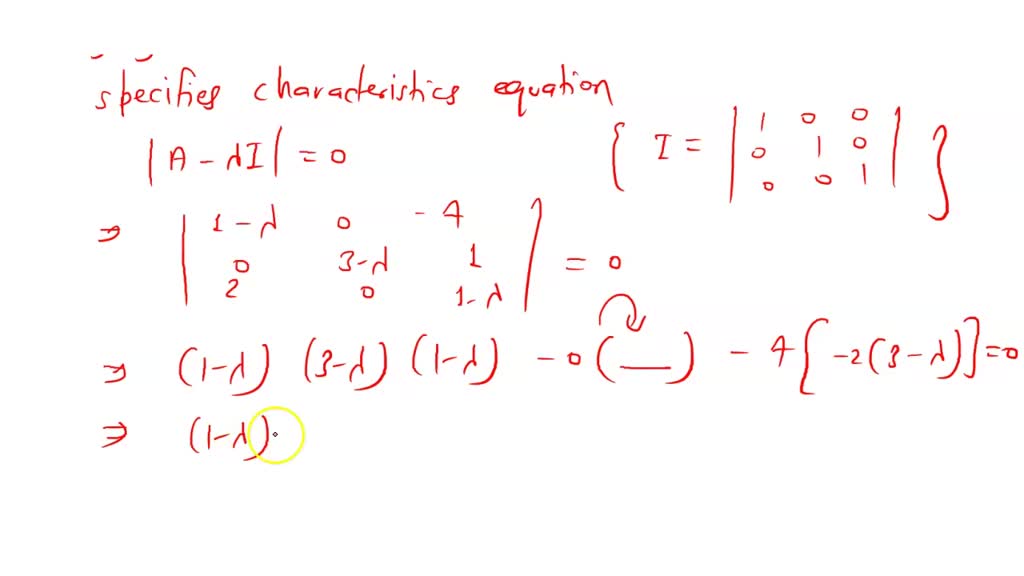 specifies characteristics equation
|A - λI| = 0 { I = | 1 0 0
0 1 0
0 0 1 | }
⇒ | 1-λ 0 -4
0 3-λ 1
2 0 1-λ | = 0
⇒ (1-λ) (3-λ) (1-λ) - 0 (__) - 4 [-2(3-λ)] = 0
⇒ (1-λ)